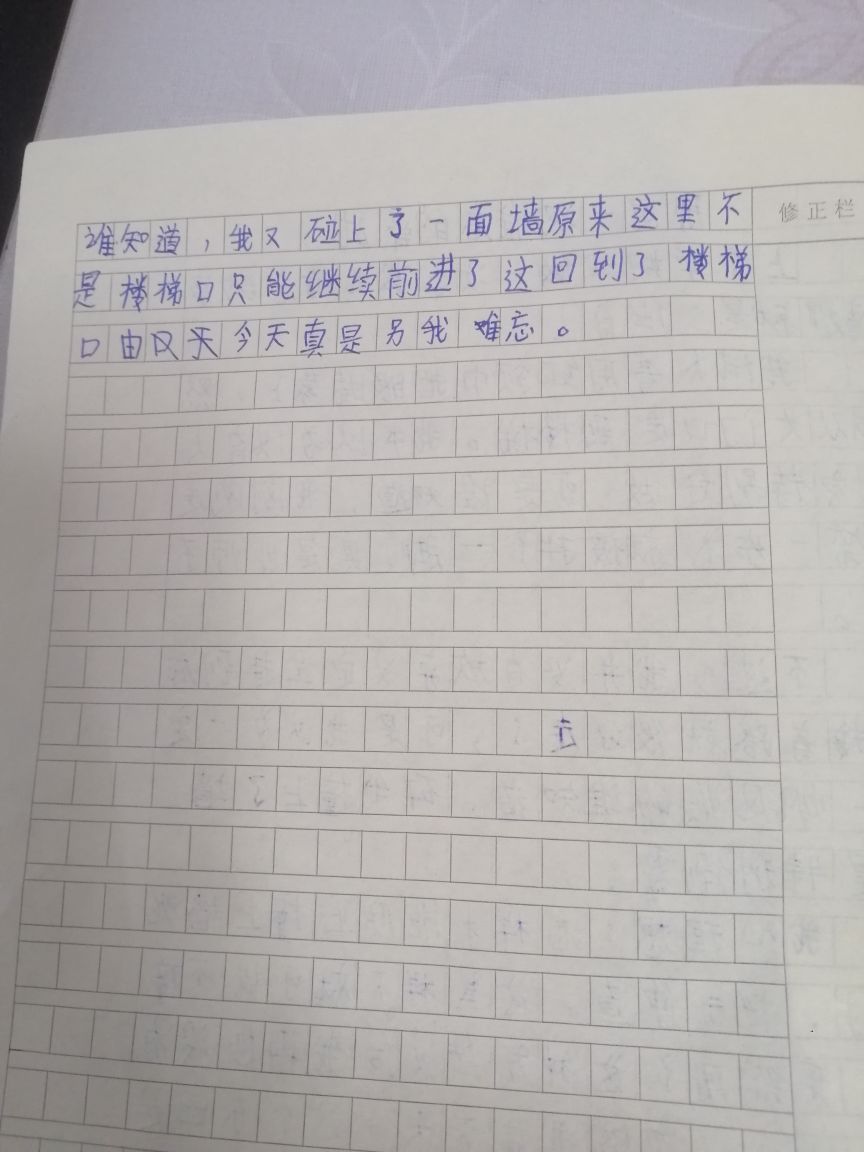 谁知道，我又碰上了一面墙原来这里不
修正栏
是楼梯口只能继续前进了这回到了楼梯
口由又天今天真是另我难忘。